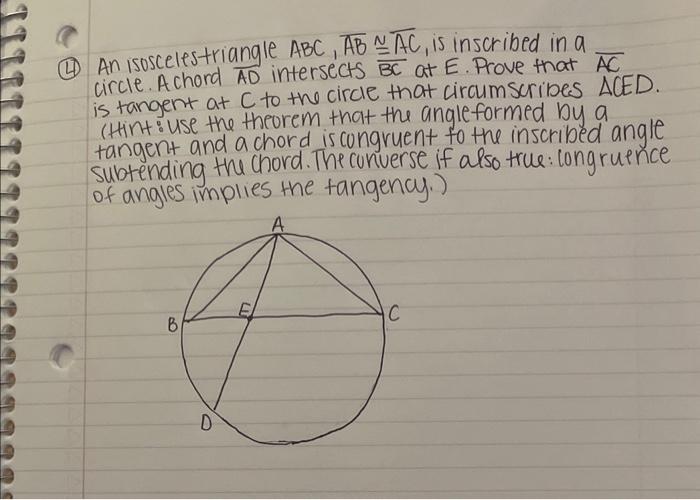 ④ An isosceles triangle ABC, AB ≅ AC, is inscribed in a
circle. A chord AD intersects BC at E. Prove that AC
is tangent at C to the circle that circumscribes ΔCED.
(Hint: use the theorem that the angle formed by a
tangent and a chord is congruent to the inscribed angle
subtending the chord. The converse if also true: congruence
of angles implies the tangency.)
A
B
E
C
D